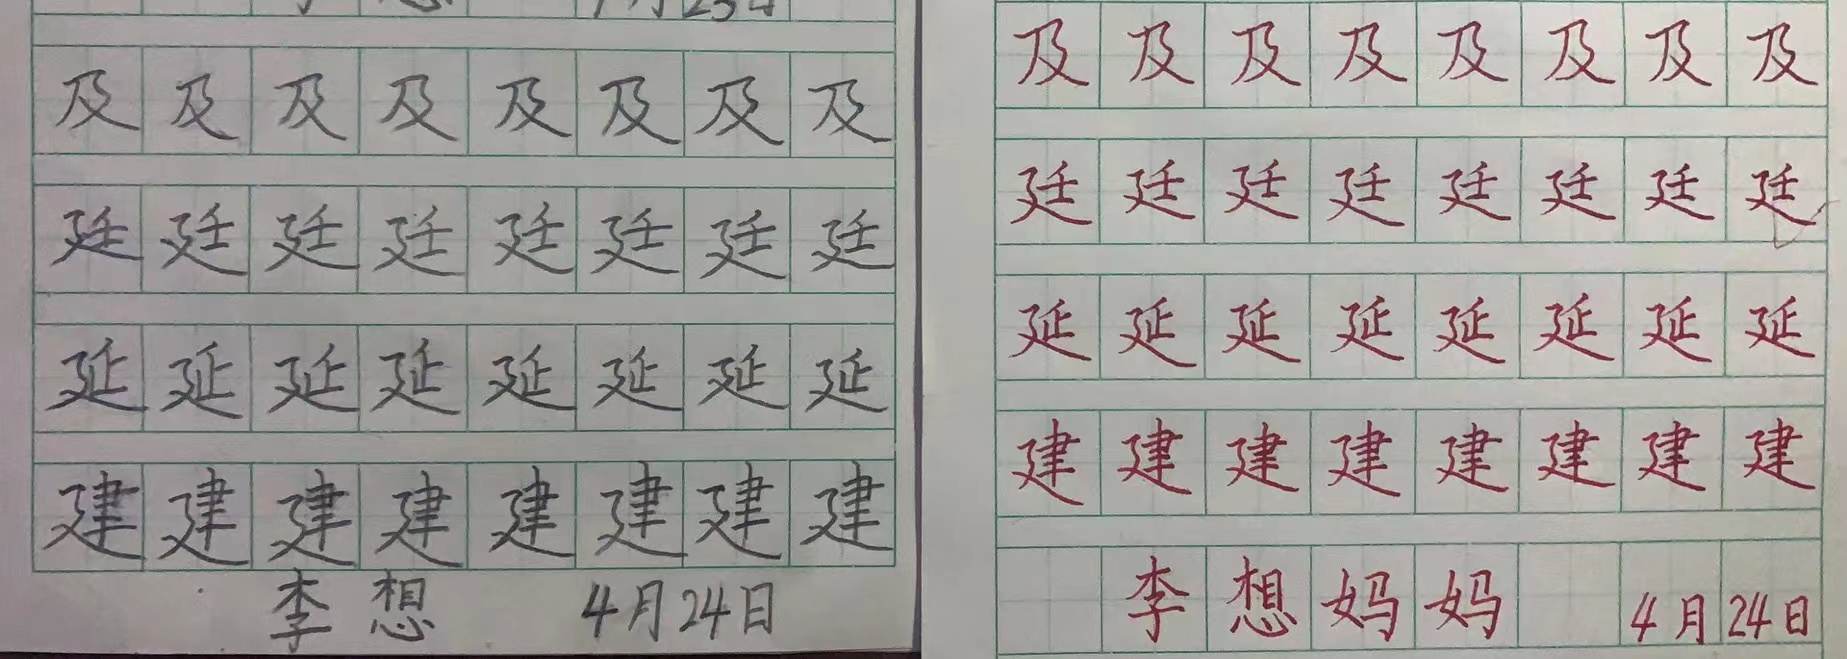 及及及及及及及及
廷廷廷廷廷廷廷廷
延延延延延延延延
建建建建建建建建
李想 4月24日
及及及及及及及及
廷廷廷廷廷廷廷廷
延延延延延延延延
建建建建建建建建
李想妈妈 4月24日